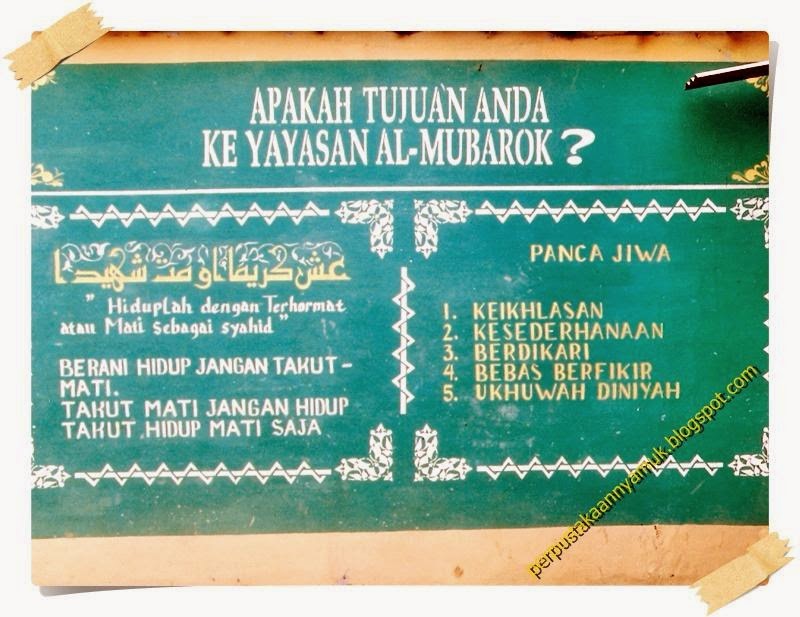 APAKAH TUJUAN ANDA
KE YAYASAN AL-MUBAROK ?
عش كريما او مت شهيدا
" Hiduplah dengan Terhormat
atau Mati Sebagai syahid "
BERANI HIDUP JANGAN TAKUT-
MATI.
TAKUT MATI JANGAN HIDUP
TAKUT HIDUP MATI SAJA
PANCA JIWA
1. KEIKHLASAN
2. KESEDERHANAAN
3. BERDIKARI
4. BEBAS BERFIKIR
5. UKHUWAH DINIYAH
perpustakaannyamuk.blogspot.com